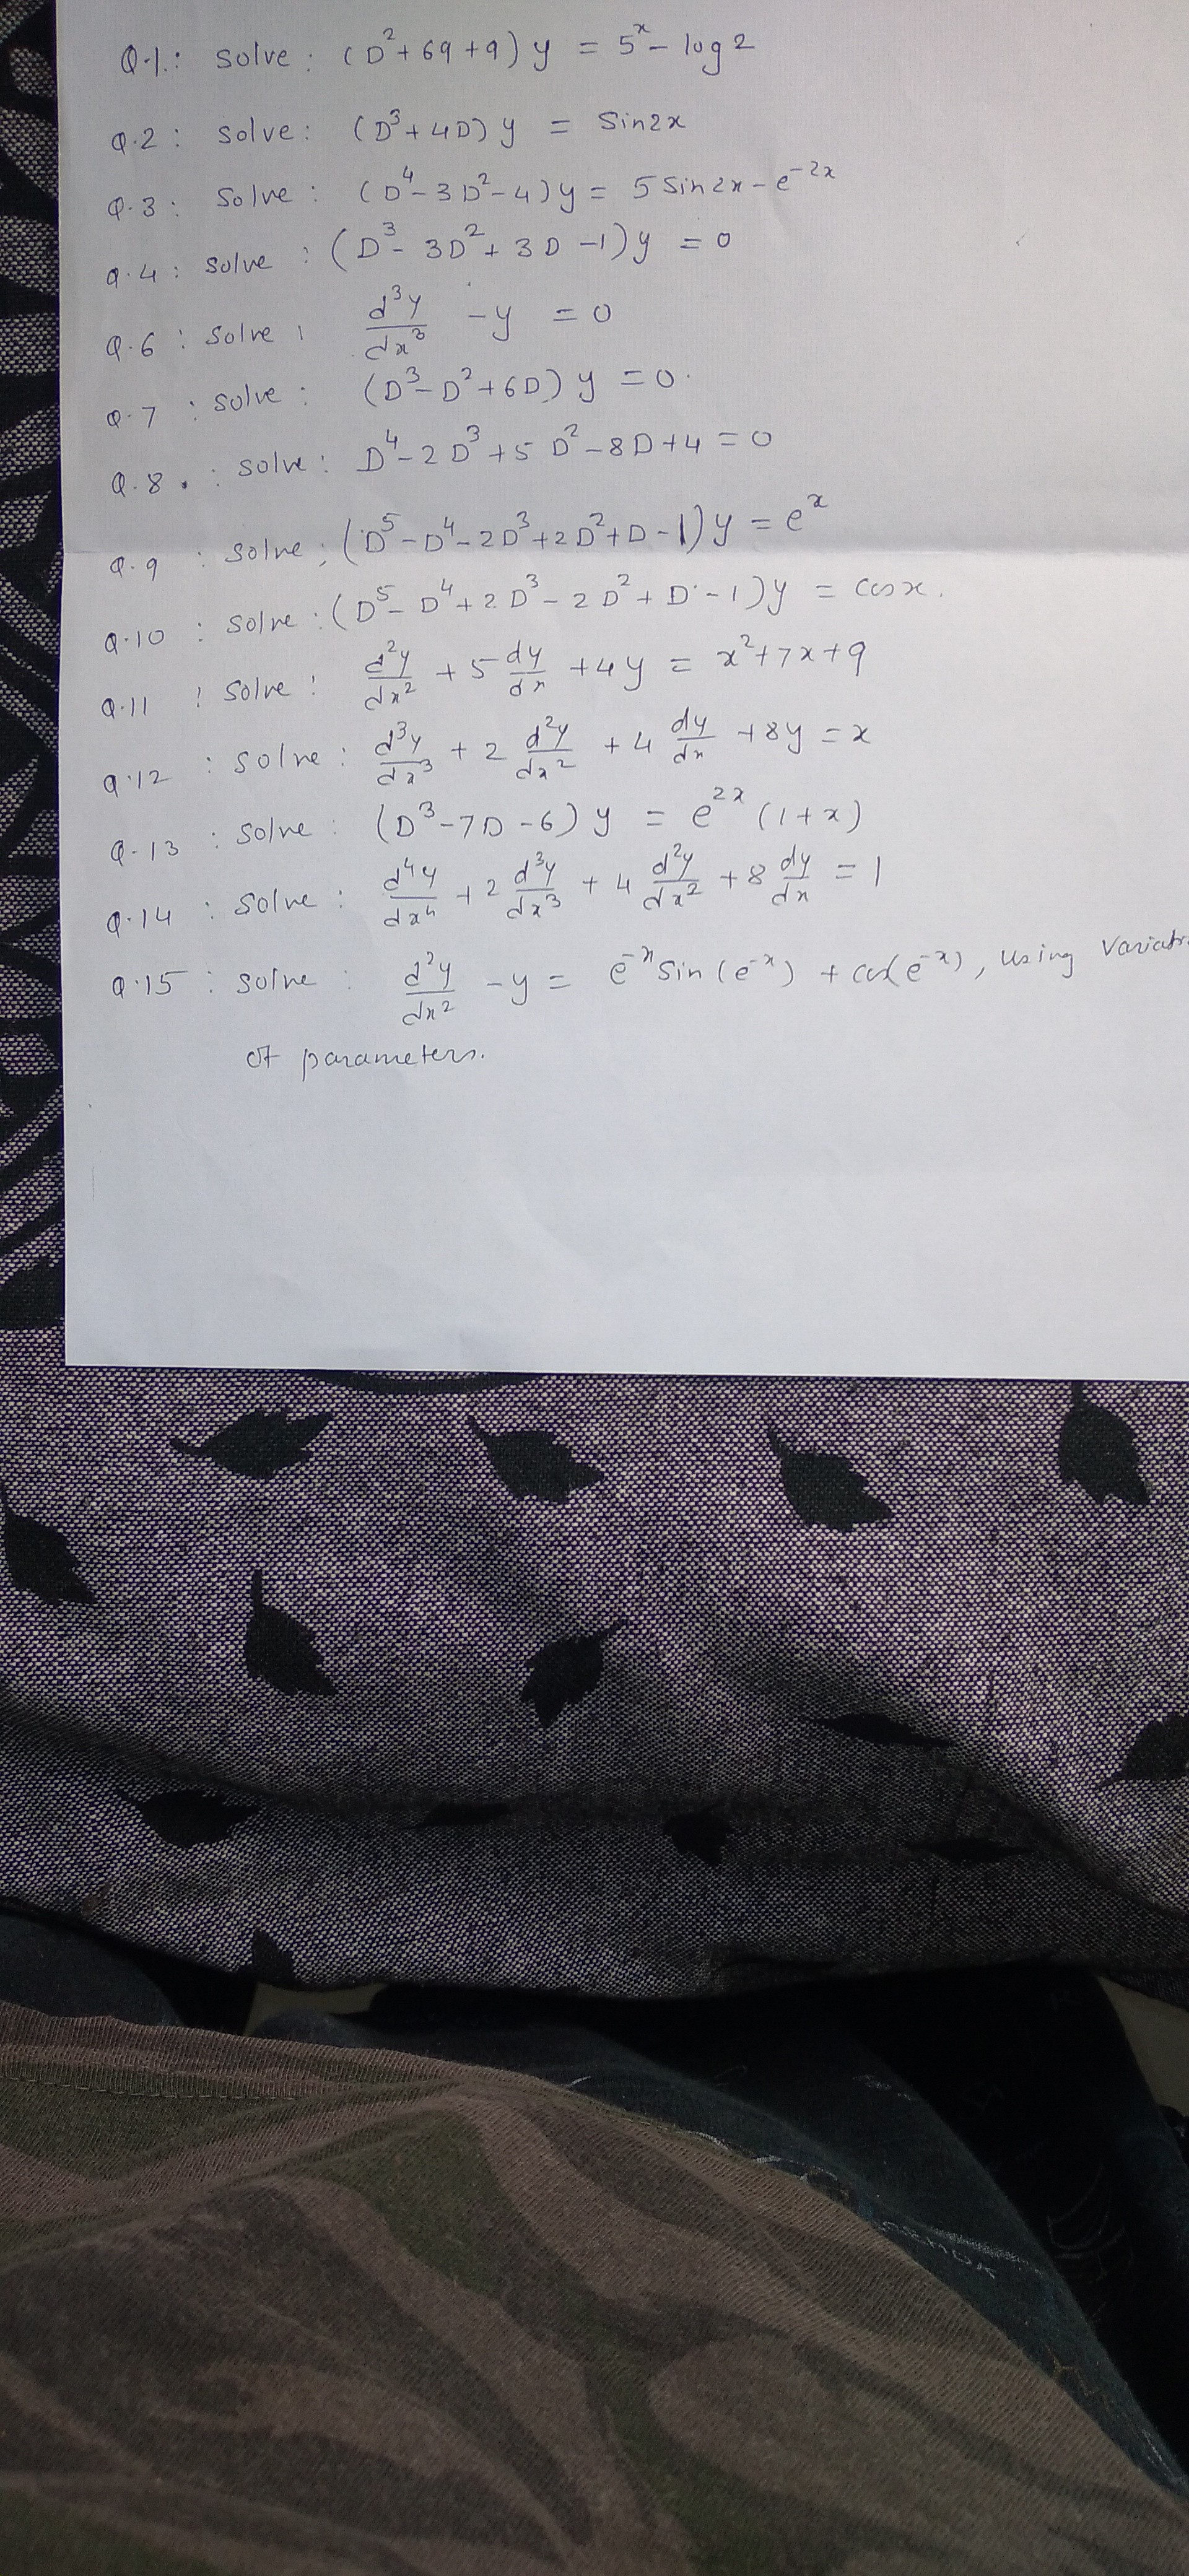 Q.1.: Solve : (D²+69+9) y = 5ˣ - log 2
Q.2 : Solve : (D³+4D) y = Sin2x
Q.3 : Solve : (D⁴-3D²-4) y = 5 Sin2x - e⁻²ˣ
Q.4 : Solve : (D³-3D²+3D-1) y = 0
Q.6 : Solve : d³y/dx³ - y = 0
Q.7 : Solve : (D³-D²+6D) y = 0.
Q.8. : Solve : D⁴-2D³+5D²-8D+4 = 0
Q.9 : Solve : (D⁵-D⁴-2D³+2D²+D-1) y = eˣ
Q.10 : Solve : (D⁵-D⁴+2D³-2D²+D-1) y = cosx.
Q.11 : Solve : d²y/dx² + 5 dy/dx + 4y = x²+7x+9
Q.12 : Solve : d³y/dx³ + 2 d²y/dx² + 4 dy/dx + 8y = x
Q.13 : Solve : (D³-7D-6) y = e²ˣ (1+x)
Q.14 : Solve : d⁴y/dx⁴ + 2 d³y/dx³ + 4 d²y/dx² + 8 dy/dx = 1
Q.15 : Solve : d²y/dx² - y = e⁻ˣ Sin (e⁻ˣ) + cos(e⁻ˣ), using
of parameters.